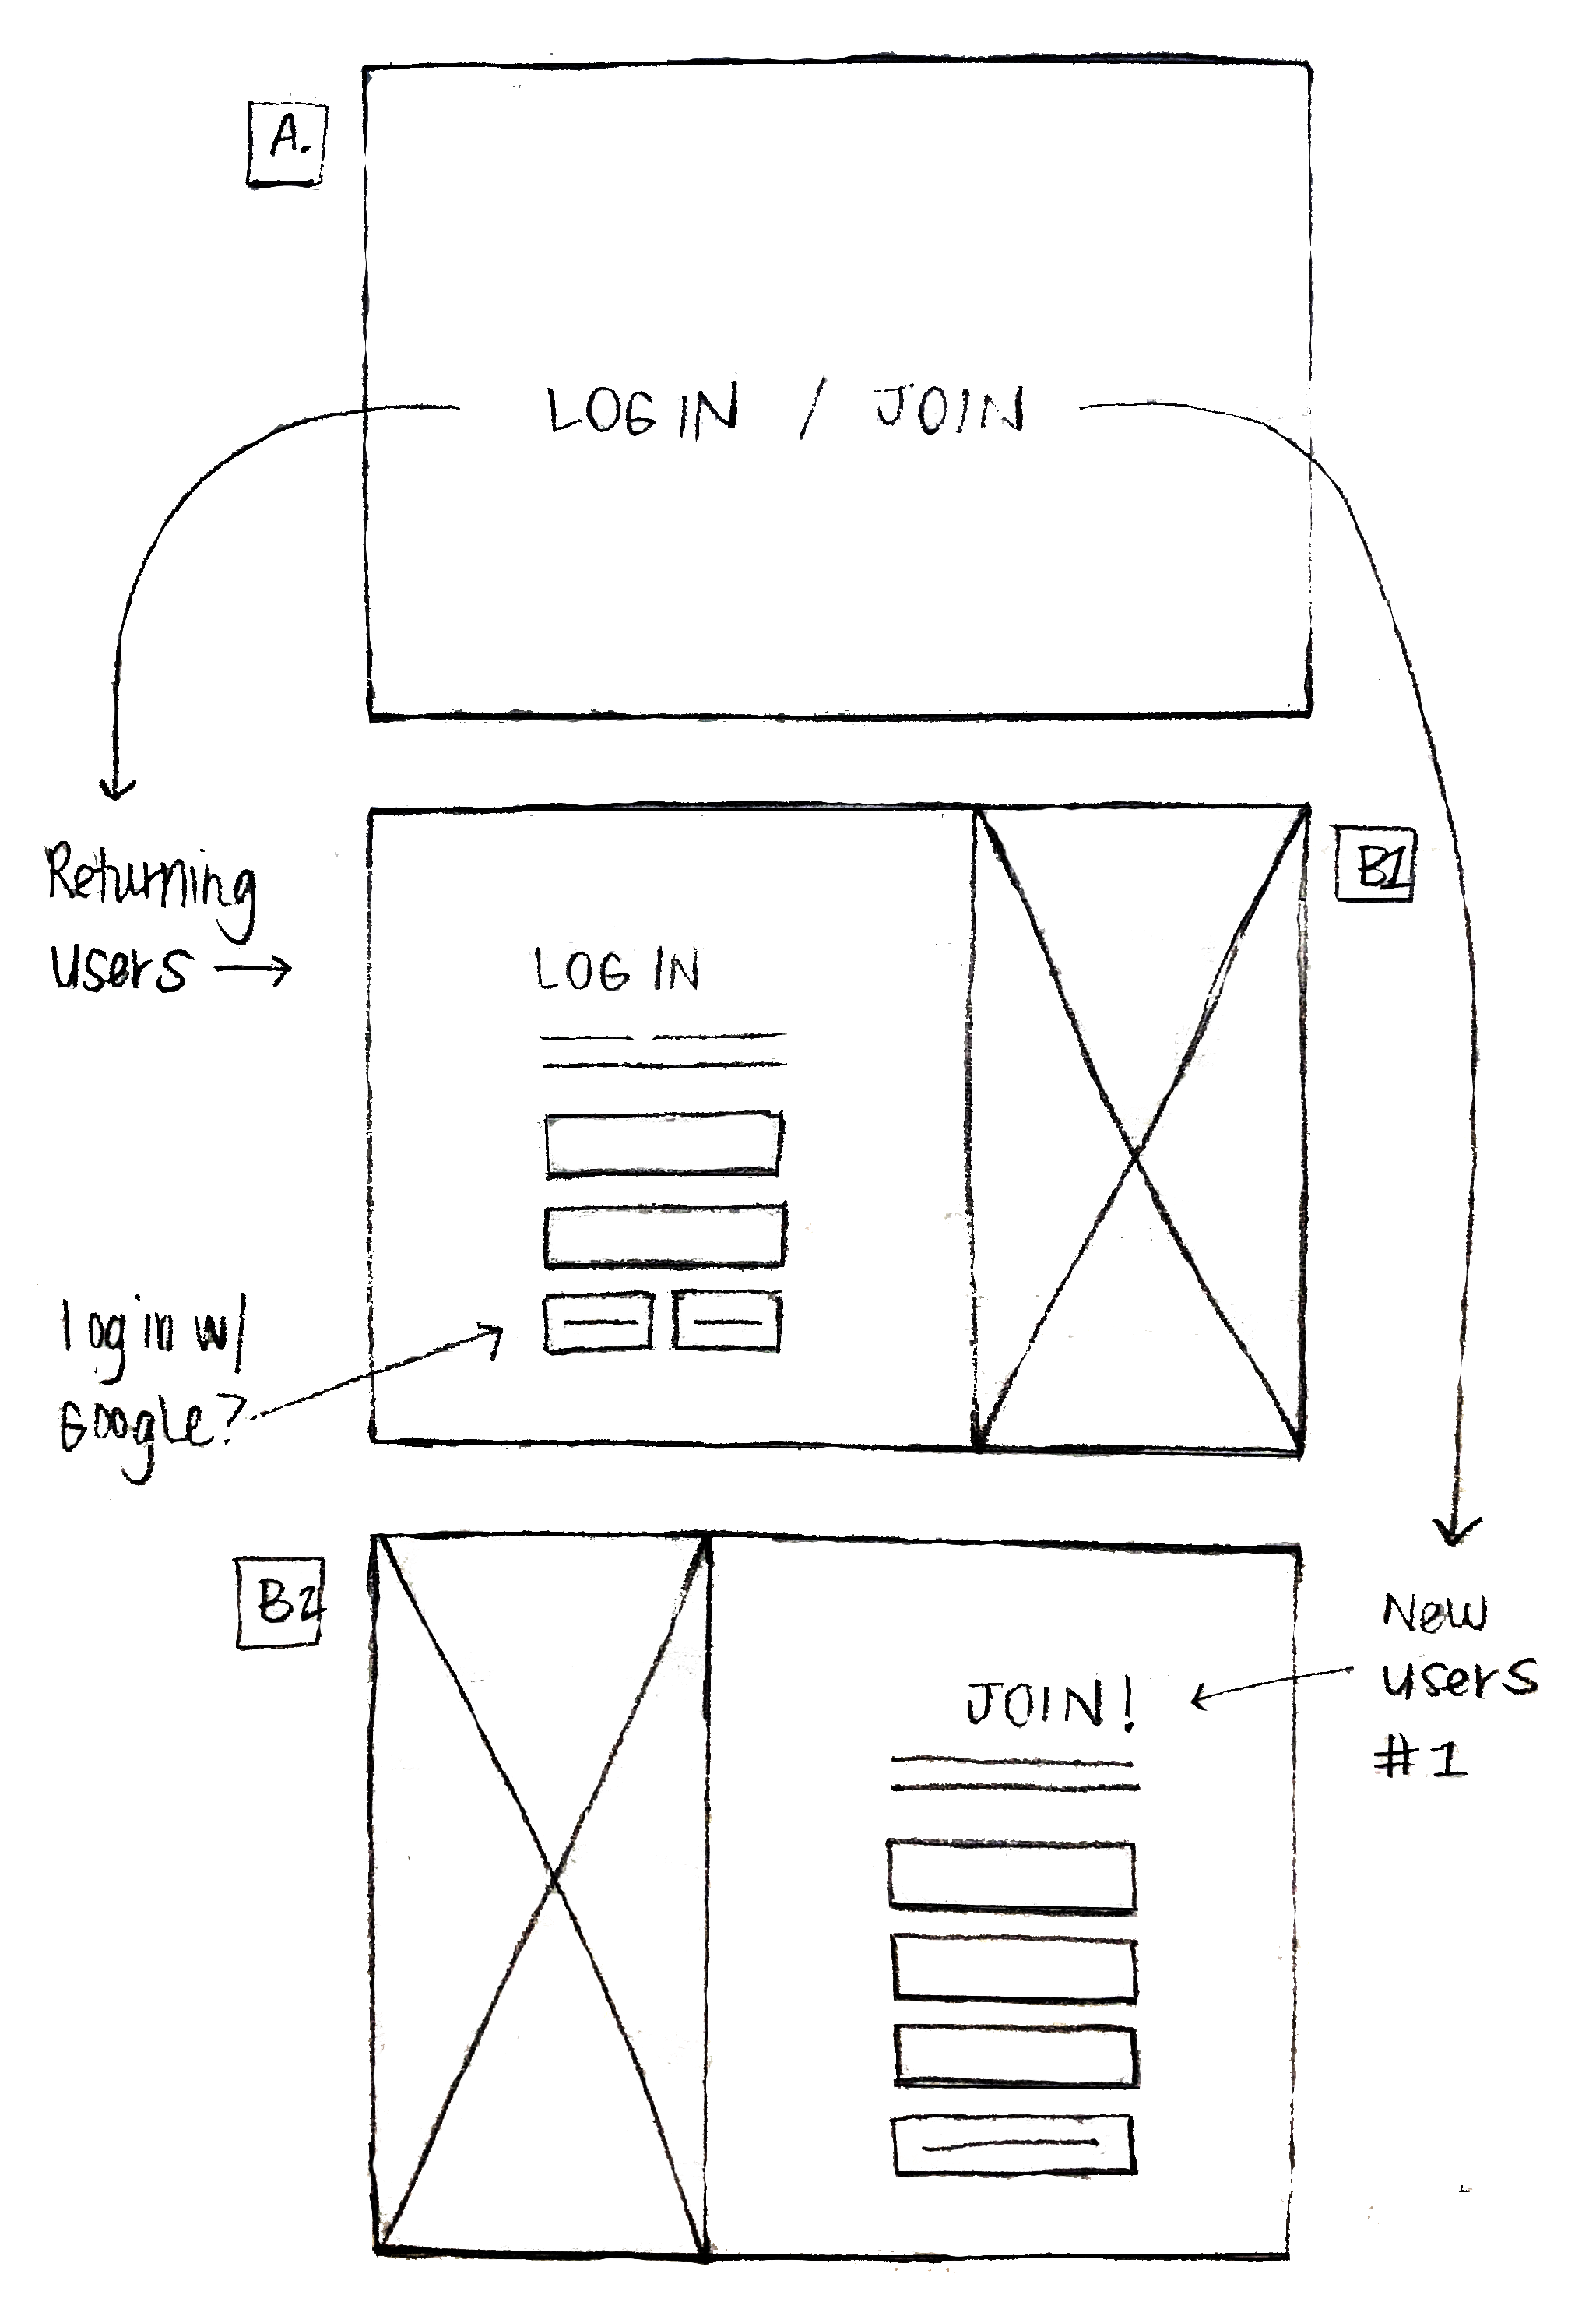 A.
LOG IN / JOIN
Returning
users →
B1
LOG IN
log in w/
Google?
B2
JOIN!
New
users
#1